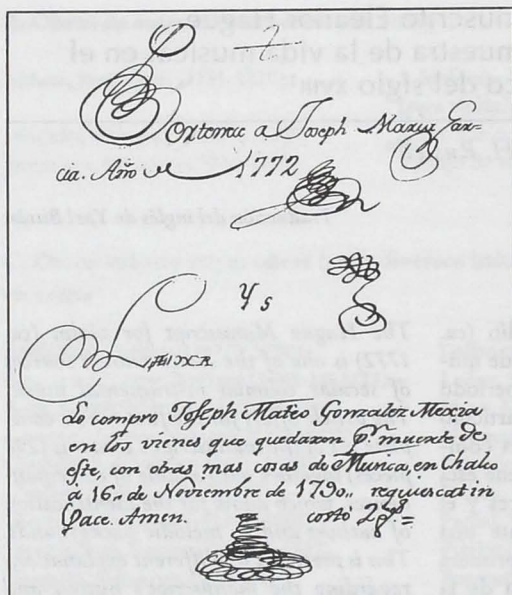 a Joseph Maria Gar-
cia. Año de 1772
Y s
Lo compro Joseph Mateo Gonzalez Mexia
en los vienes que quedaron pr. muerte de
este, con otras mas cosas de Musica, en Chalco
a 16,, de Noviembre de 1790,, requescat in
Pace. Amen. costo 2ps=